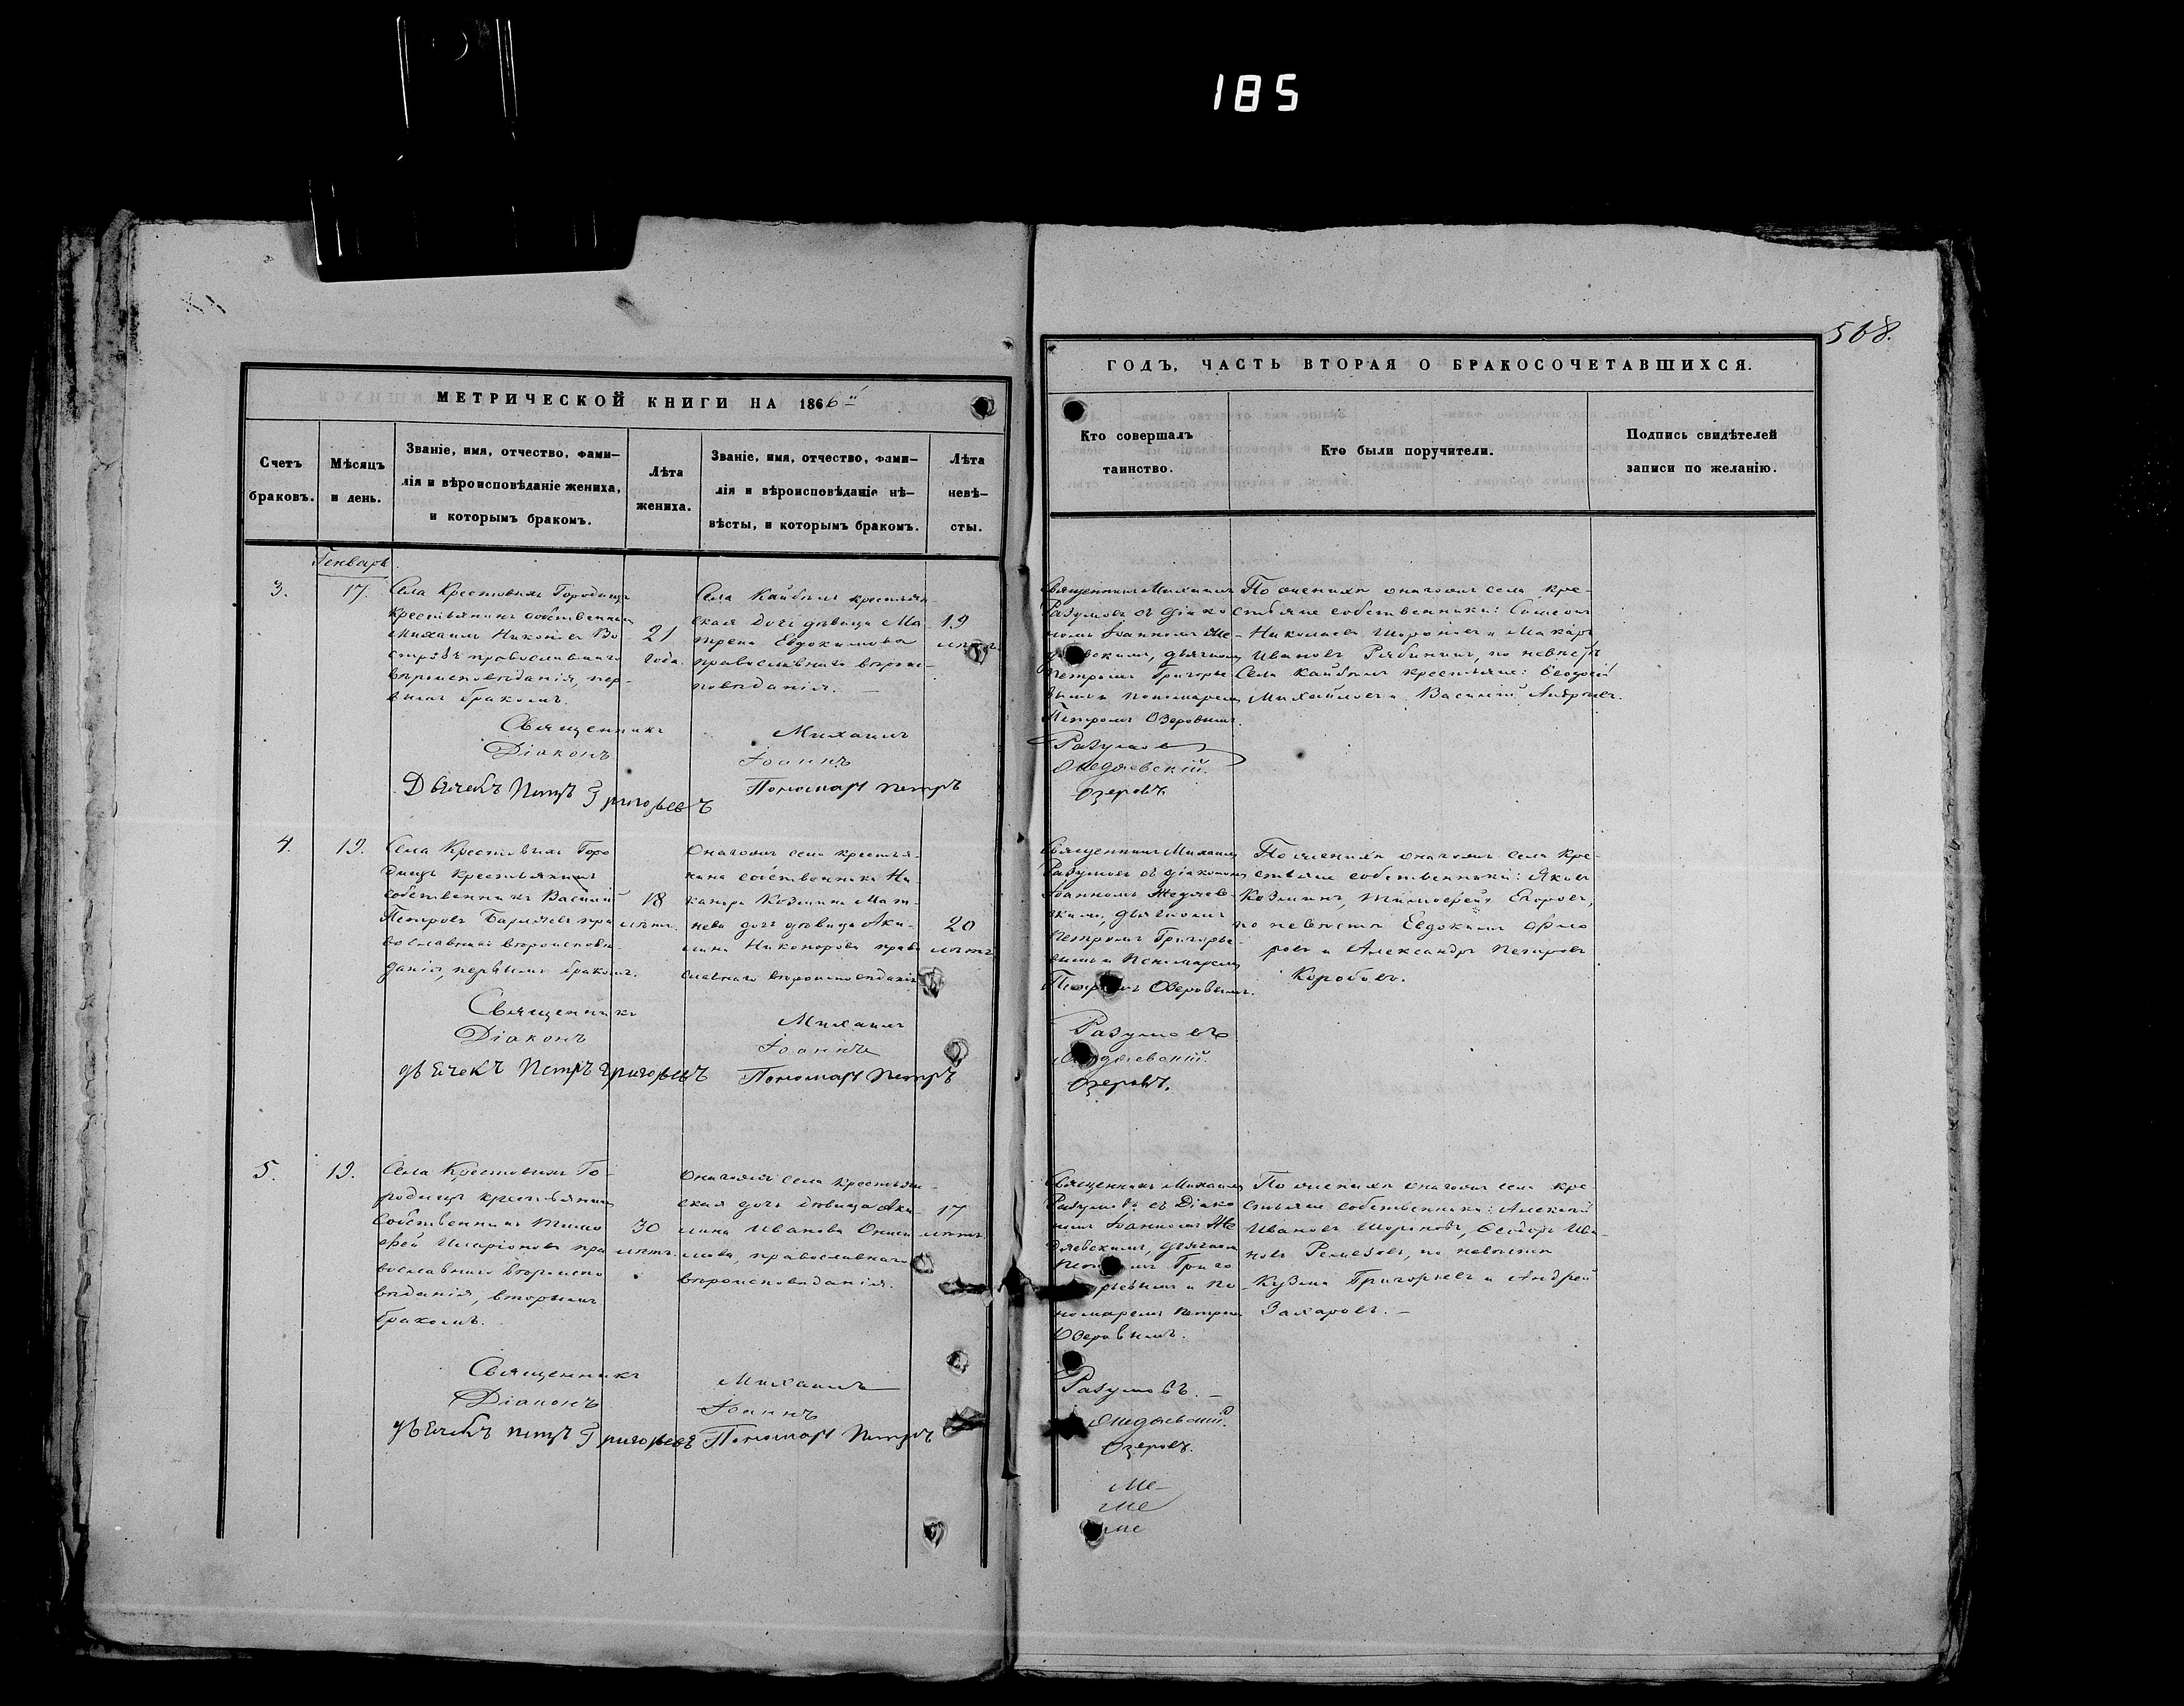 185
568.
МЕТРИЧЕСКОЙ КНИГИ НА 1866й
Счетъ браковъ.
Мѣсяцъ и день.
Званіе, имя, отчество, фами-
лія и вѣроисповѣданіе жениха,
и которымъ бракомъ.
Лѣта жениха.
Званіе, имя, отчество, фами-
лія и вѣроисповѣданіе не-
вѣсты, и которымъ бракомъ.
Лѣта невѣ-
сты.
Генварь
3.
17.
Села Крестовыхъ Городищъ
крестьянинъ собственникъ
Михаилъ Никоновъ Во-
православнаго
вѣроисповѣданія, пер-
вымъ бракомъ.
21
года.
Села Кайбелъ крестьян-
ская дочь дѣвица Ма-
трена Евдокимова
православнаго вѣроис-
повѣданія.
19
лѣтъ.
Священникъ Михаилъ
Діаконъ Іоаннъ
Дьячекъ Петръ Григорьевъ Пономарь Петръ
4.
19.
Села Крестовыхъ Горо
дищъ крестьянинъ
собственникъ Василій
Петровъ пра
вославнаго вѣроисповѣ-
данія, первымъ бракомъ.
18
лѣтъ.
Онагожъ села крестья-
нина собственника Ни-
канора Козмина Мат-
неева дочь дѣвица Аки-
лина Никонорова право
славнаго вѣроисповѣданія
20
лѣтъ
Священникъ Михаилъ
Діаконъ Іоаннъ
дьячекъ Петръ Григорьевъ Пономарь Петръ
5.
19.
Села Крестовыхъ Го-
родищъ крестьянинъ
Собственникъ Тимо
фей Иларіоновъ пра
вославнаго вѣроиспо
вѣданія, вторымъ
бракомъ.
30
лѣтъ.
Онагожъ села крестьян-
ская дочь дѣвица Аки-
лина Иванова Ониси
мова, православнаго
вѣроисповѣданія.
17
лѣтъ.
Священникъ Михаилъ
Діаконъ Іоаннъ
дьячекъ Петръ Григорьевъ Пономарь Петръ
ГОДЪ, ЧАСТЬ ВТОРАЯ О БРАКОСОЧЕТАВШИХСЯ.
Кто совершалъ
таинство.
Кто были поручители.
Подпись свидѣтелей
записи по желанію.
Священникъ Михаилъ
Разумовъ съ діако
номъ Іоанномъ Ме-
дяевскимъ, дьячкомъ
Петромъ Григорье
вымъ и пономаремъ
Петромъ Озеровымъ.
Разумовъ
Медяевскій.
Озеровъ
По женихѣ онагожъ села кре-
стьяне собственники:
Николаевъ Шороновъ и Макаръ
Ивановъ Рябининъ, по невѣстѣ
Села Кайбелъ крестьяне:
Михайловъ и Василій Андреевъ.
Священникъ Михаилъ
Разумовъ съ діакономъ
Іоанномъ Медяев-
скимъ, дьячкомъ
Петромъ Григорье-
вымъ и Пономаремъ
Петромъ Озеровымъ.
Разумовъ
Медяевскій.
Озеровъ.
По женихѣ онагожъ села кре-
стьяне собственники: Яковъ
Козминъ, Тимофей Егоровъ,
по невѣстѣ Евдокимъ Фло
ровъ и Александръ Петровъ
Коробовъ.
Священникъ Михаилъ
Разумовъ съ Діако
номъ Іоанномъ Ме
дяевскимъ, дьячкомъ
Петромъ Григо
рьевымъ и по
номаремъ Петромъ
Озеровымъ.
Разумовъ.
Медяевскій.
Озеровъ.
Ме-
Ме
ме
По женихѣ онагожъ села кре-
стьяне собственники: Алексѣй
Ивановъ Шороновъ, Ѳедоръ Ива-
новъ Ремезовъ, по невѣстѣ
Кузма Григорьевъ и Андрей
Захаровъ.